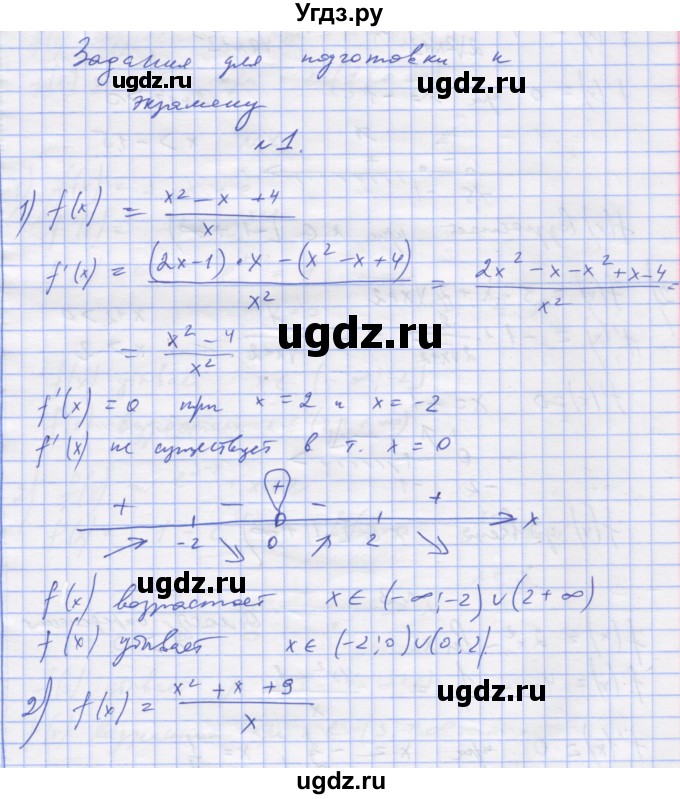 Угдз.ру
Задания для подготовки к
ugdz.ru ugdz.ru
экзамену
№1.
1) f(x) = (x² - x + 4)/x
f'(x) = ((2x-1)·x - (x² - x + 4))/x² = (2x² - x - x² + x - 4)/x² =
ugdz.ru
= (x² - 4)/x²
f'(x) = 0 при x = 2 и x = -2
f'(x) не существует в т. x = 0
+ - + - +
-2 0 2 x
ugdz.ru
f(x) возрастает x ∈ (-∞; -2) ∪ (2 + ∞)
f(x) убывает x ∈ (-2; 0) ∪ (0; 2)
ugdz.ru ugdz.ru
2) f(x) = (x² + x + 9)/x
ugdz.ru